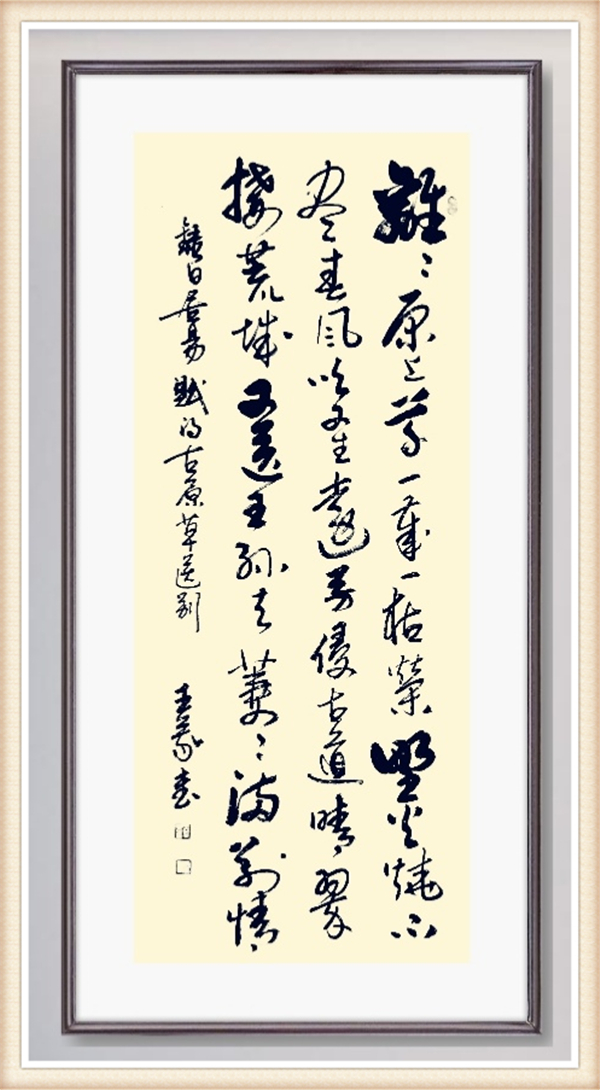 離々原上草一歲一枯榮野火燒不
尽春風吹又生遠芳侵古道晴翠
接荒城又送王孫去萋々滿別情
錄白居易賦得古原草送別
王 書